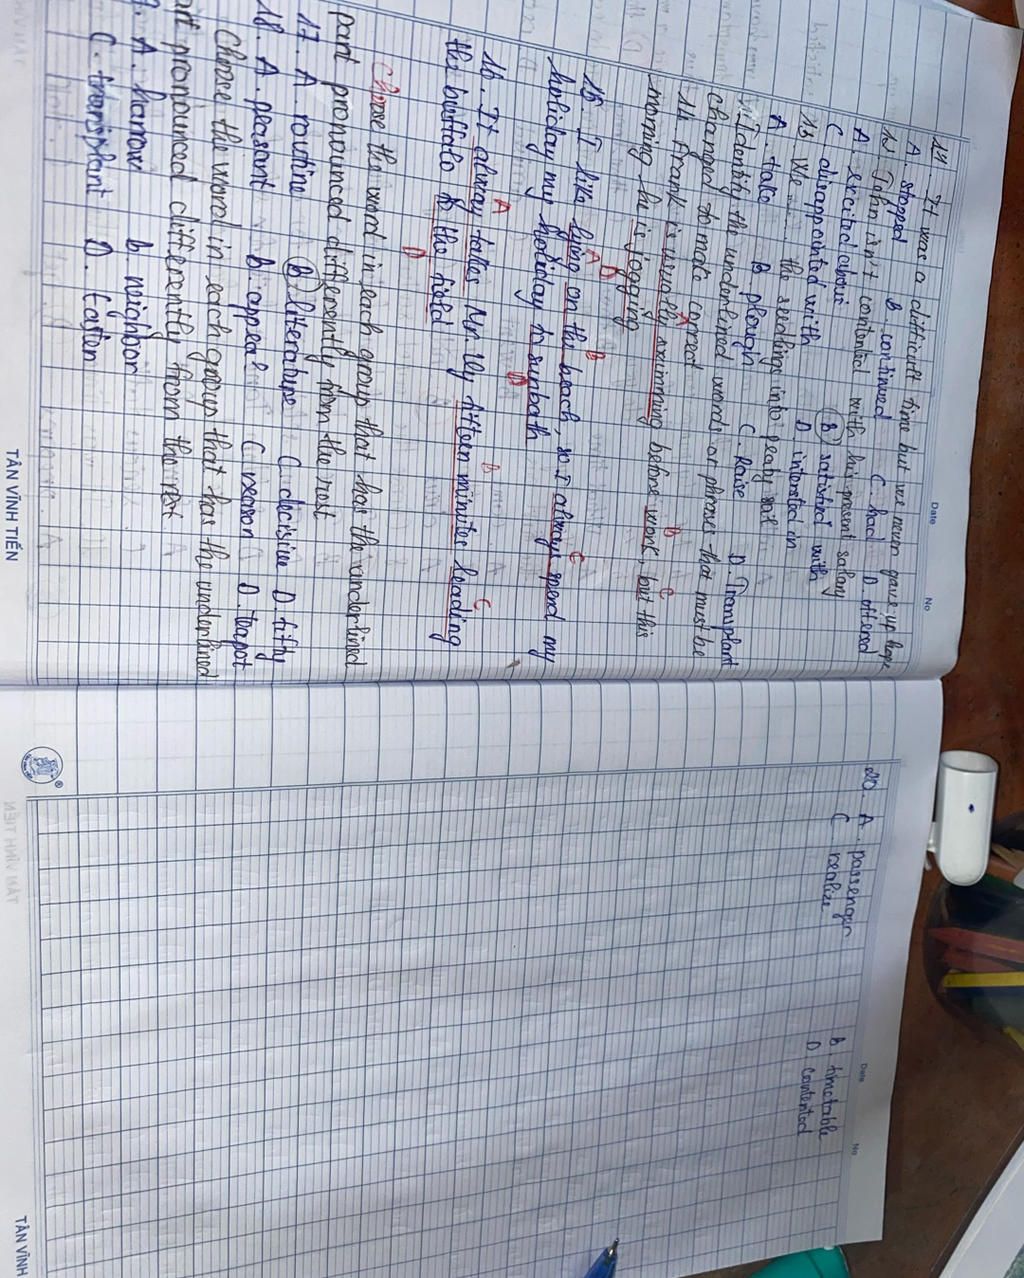 Date No
11. It was a difficult time but we never gave up hope
A. stopped B. continued C. had D. offered
12. John isn't contented with his present salary
A. excited about B satisfied with
C disappointed with D. interested in
13. We ---- the seedlings into peaty soil
A. take B. plough C. Raise D. Transplant
Identify the underlined words or phrases that must be
changed to make correct
14. Frank is usually swimming before work, but this
A B C
morning he is jogging
D
15 I like lying on the beach, so I always spend my
A B C
holiday my holiday to sunbath
D
16. It alway takes Mr. Vy fifteen minutes leading
A B C
the buffalo to the field
D
Choose the word in each group that has the underlined
part pronounced differently from the rest
17. A. routine B. literature C. decisive D. fifty
18. A. peasant B. appeal C reason D. teapot
Choose the word in each group that has the underlined
part pronounced differently from the rest
A. harrow b. neighbor
C. transplant D. fasten
TÂN VĨNH TIẾN
Date No
20. A. passenger B. timetable
C realize D contented
TÂN VĨNH